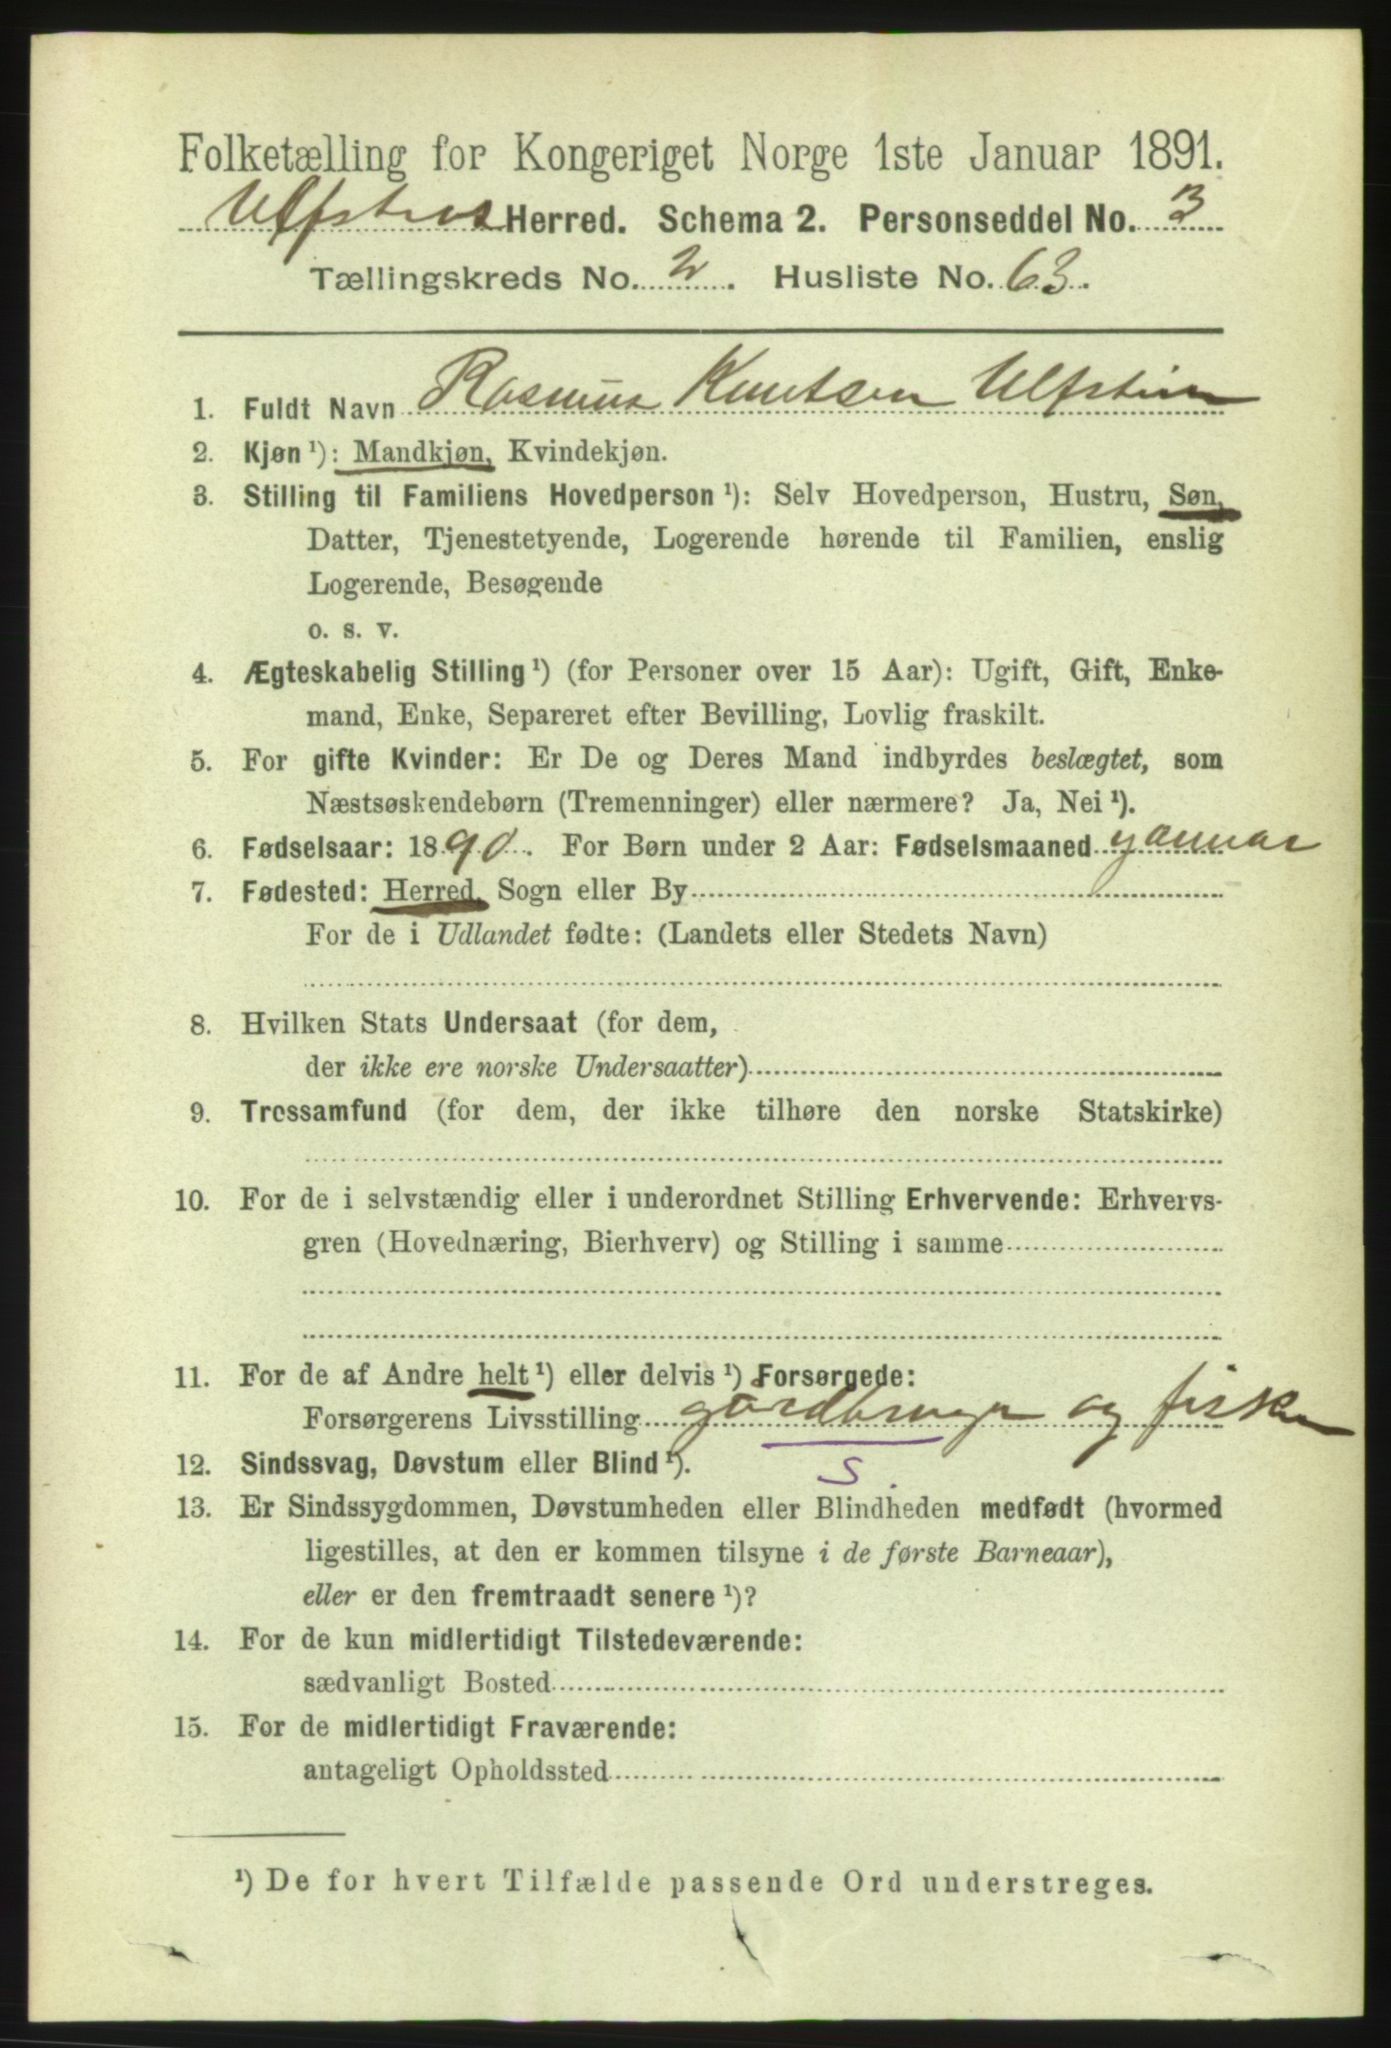 Folketælling for Kongeriget Norge 1ste Januar 1891.
Ulfsten Herred. Schema 2. Personseddel No. 3
Tællingskreds No. 2. Husliste No. 63.
1. Fuldt Navn Rasmus Knutsen Ulfstein
2. Kjøn ¹): Mandkjøn, Kvindekjøn.
3. Stilling til Familiens Hovedperson ¹): Selv Hovedperson, Hustru, Søn,
Datter, Tjenestetyende, Logerende hørende til Familien, enslig
Logerende, Besøgende
o. s. v.
4. Ægteskabelig Stilling ¹) (for Personer over 15 Aar): Ugift, Gift, Enke-
mand, Enke, Separeret efter Bevilling, Lovlig fraskilt.
5. For gifte Kvinder: Er De og Deres Mand indbyrdes beslægtet, som
Næstsøskendebørn (Tremenninger) eller nærmere? Ja, Nei ¹).
6. Fødselsaar: 1890. For Børn under 2 Aar: Fødselsmaaned januar
7. Fødested: Herred, Sogn eller By
For de i Udlandet fødte: (Landets eller Stedets Navn)
8. Hvilken Stats Undersaat (for dem,
der ikke ere norske Undersaatter)
9. Trossamfund (for dem, der ikke tilhøre den norske Statskirke)
10. For de i selvstændig eller i underordnet Stilling Erhvervende: Erhvervs-
gren (Hovednæring, Bierhverv) og Stilling i samme
11. For de af Andre helt ¹) eller delvis ¹) Forsørgede:
Forsørgerens Livsstilling gårdbruger og fisker
12. Sindssvag, Døvstum eller Blind ¹). S.
13. Er Sindssygdommen, Døvstumheden eller Blindheden medfødt (hvormed
ligestilles, at den er kommen tilsyne i de første Barneaar),
eller er den fremtraadt senere ¹)?
14. For de kun midlertidigt Tilstedeværende:
sædvanligt Bosted
15. For de midlertidigt Fraværende:
antageligt Opholdssted
¹) De for hvert Tilfælde passende Ord understreges.